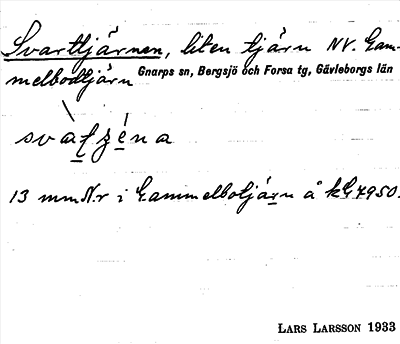 Svarttjärnen, liten tjärn NV. Gam-
melbodtjärn Gnarps sn, Bergsjö och Forsa tg, Gävleborgs län
13 mm N.r i Gammelbotjärn å kG4950.
LARS LARSSON 1933